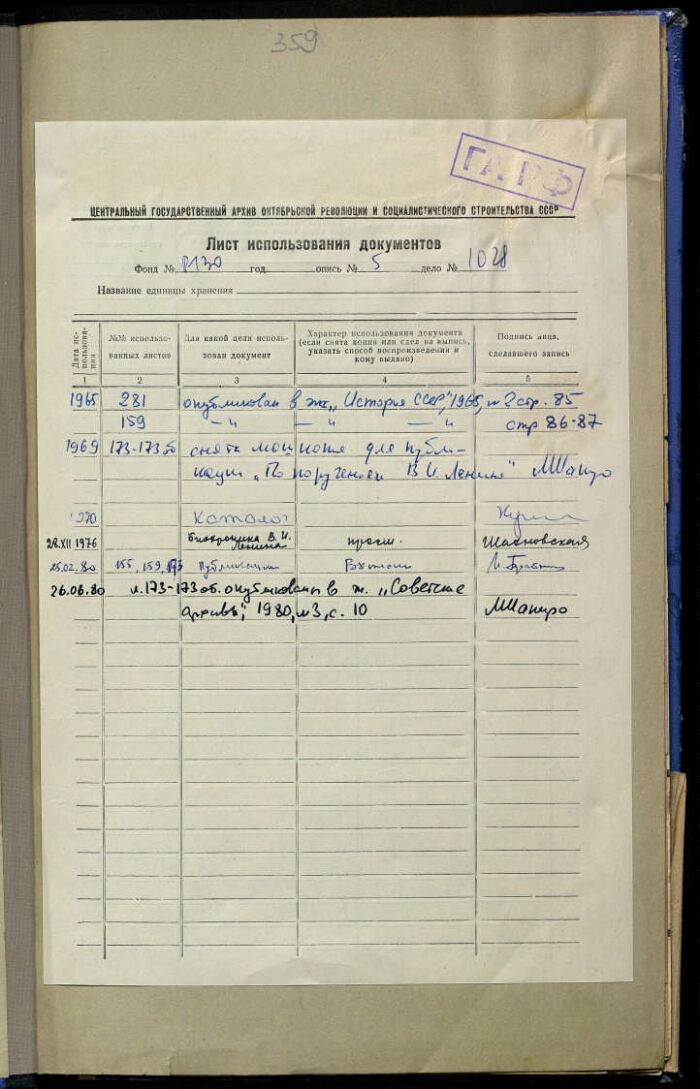 359
ГАРФ
ЦЕНТРАЛЬНЫЙ ГОСУДАРСТВЕННЫЙ АРХИВ ОКТЯБРЬСКОЙ РЕВОЛЮЦИИ И СОЦИАЛИСТИЧЕСКОГО СТРОИТЕЛЬСТВА СССР
Лист использования документов
Фонд № Р130 год опись № 5 дело № 1028
Название единицы хранения
Дата ис-
пользова-
ния
№№ использо-
ванных листов
Для какой цели исполь-
зован документ
Характер использования документа
(если снята копия или сделана выпись,
указать способ воспроизведения и
кому выдано)
Подпись лица,
сделавшего запись
1 2 3 4 5
1965 281 опубликован в ж. „История СССР", 1965, № 2 стр. 85
159 — „ — „ — „ стр 86-87
1969 173-173об снята копия для публи-
кации „По поручению В И Ленина" МШапиро
1970 Каталог
28.XII 1976 Биохроника В. И. Ленина просм. Шахновская
25.02.80 155, 159, 173 Публикация
26.06.80 л. 173-173 об. опубликованы в ж. „Советские
архивы", 1980, №3, с. 10 МШапиро